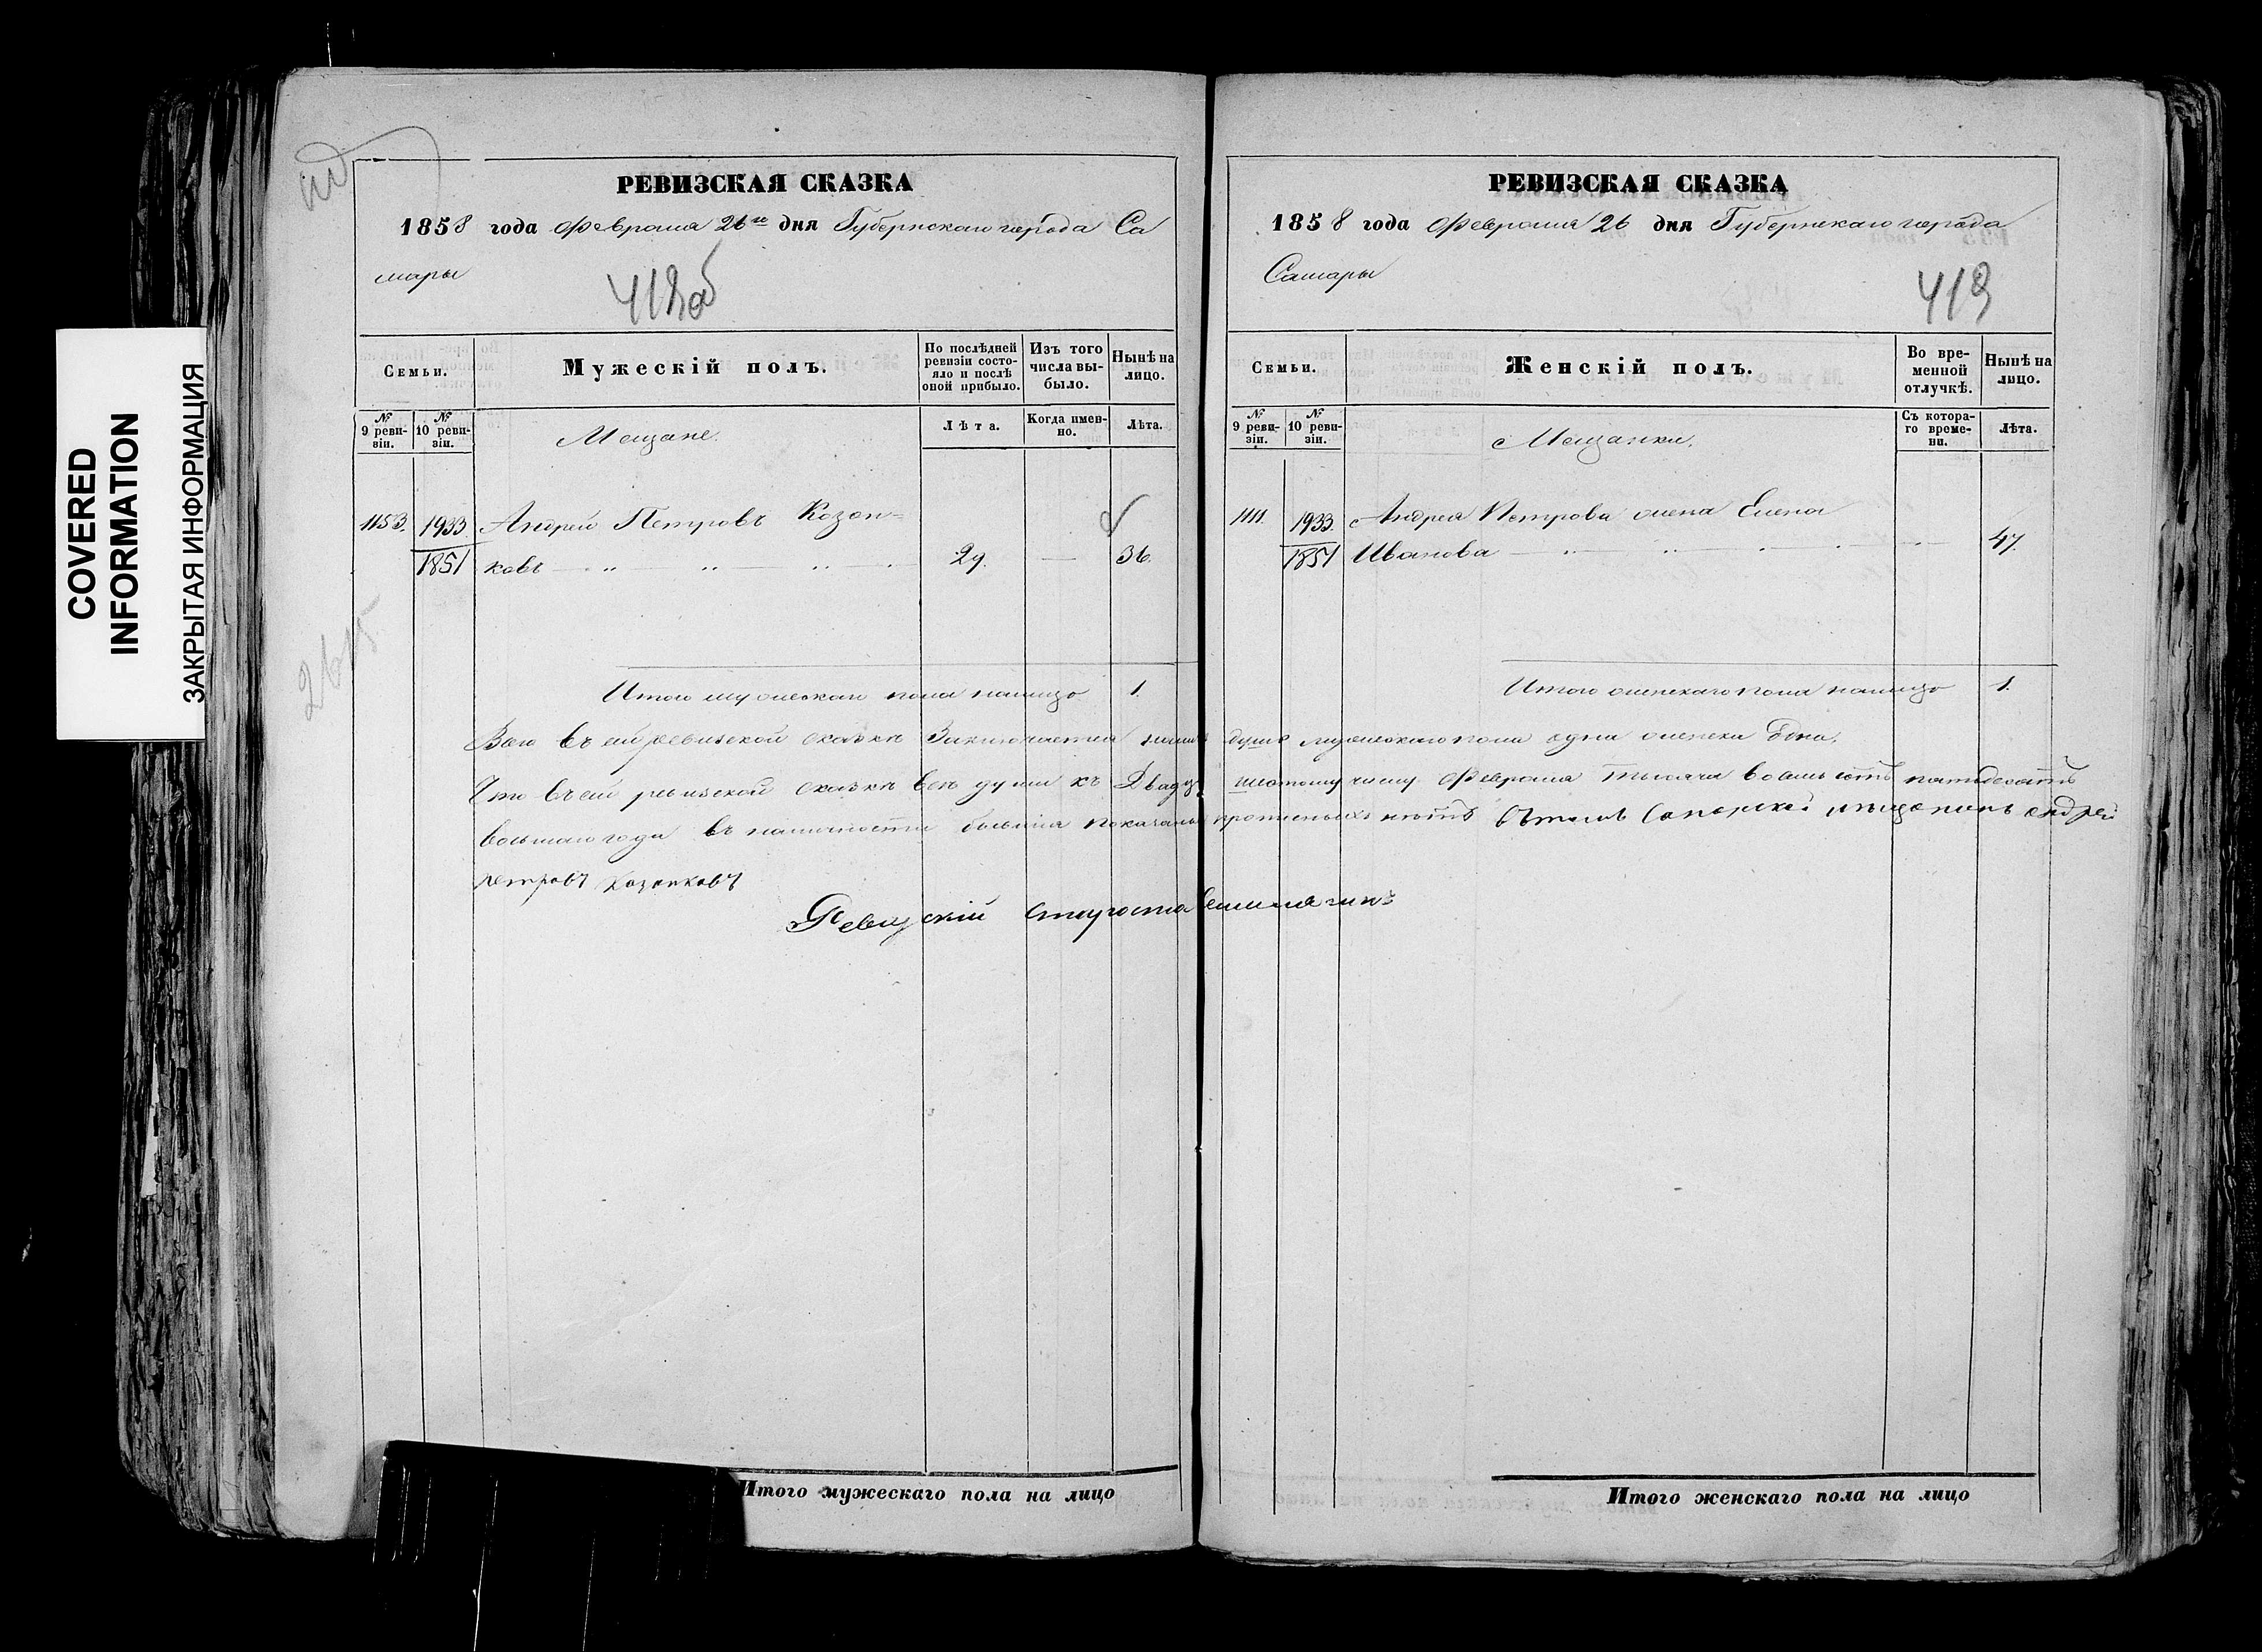 COVERED
INFORMATION
ЗАКРЫТАЯ ИНФОРМАЦИЯ
РЕВИЗСКАЯ СКАЗКА
1858 года Февраля 26го дня Губернскаго города Са
мары
Семьи.
Мужескій полъ.
По послѣдней ревизіи состояло и послѣ оной прибыло.
Изъ того числа выбыло.
Нынѣ на лицо.
№ 9 ревизіи.
№ 10 ревизіи.
Мещане.
Лѣта.
Когда именно.
Лѣта.
1153. 1933 Андрей Петровъ Козен=
1851 ковъ 29. — 36.
Итого мужескаго пола налицо 1.
Всего въ сей ревизской сказкѣ Заключается
Что въ сей ревизской сказкѣ всѣ души къ Двадц
восьмаго года въ наличности бывшія показаны
петровъ
Ревизскій староста
Итого мужескаго пола на лицо
РЕВИЗСКАЯ СКАЗКА
1858 года Февраля 26 дня Губернскаго города
Самары
419
Семьи.
Женскій полъ.
Во временной отлучкѣ.
Нынѣ на лицо.
№ 9 ревизіи.
№ 10 ревизіи.
Мещанки.
Съ котораго времени.
Лѣта.
1111. 1933. Андрея Петрова жена Елена
1851 Иванова 47.
Итого женскаго пола налицо 1.
душъ мужескаго пола одна женска одна.
шестому числу Февраля тысяча восемь сотъ пятьдесятъ
нѣтъ въ томъ Самарской мещанинъ андрей
Итого женскаго пола на лицо